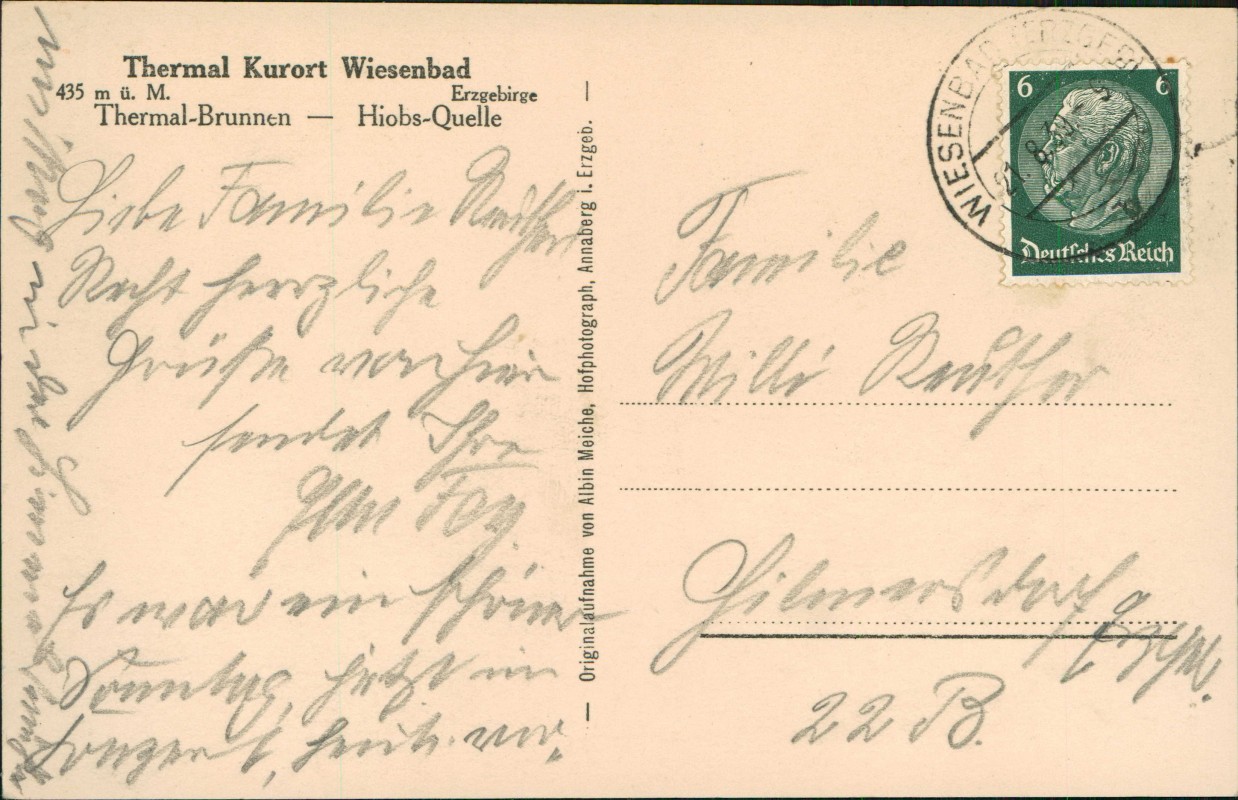 Thermal Kurort Wiesenbad
435 m ü. M. Erzgebirge
Thermal-Brunnen — Hiobs-Quelle
Liebe Familie Reuther
Recht herzliche
Grüße von hier
sendet Ihre
Es war ein schöner
Sonntag, jetzt im
Konzert, heute
— Originalaufnahme von Albin Meiche, Hofphotograph, Annaberg i. Erzgeb. —
WIESENBAD (ERZGEB)
6 6
Deutsches Reich
Familie
Willi Reuther
Hilmersdorf
Erzgeb.
22 B.